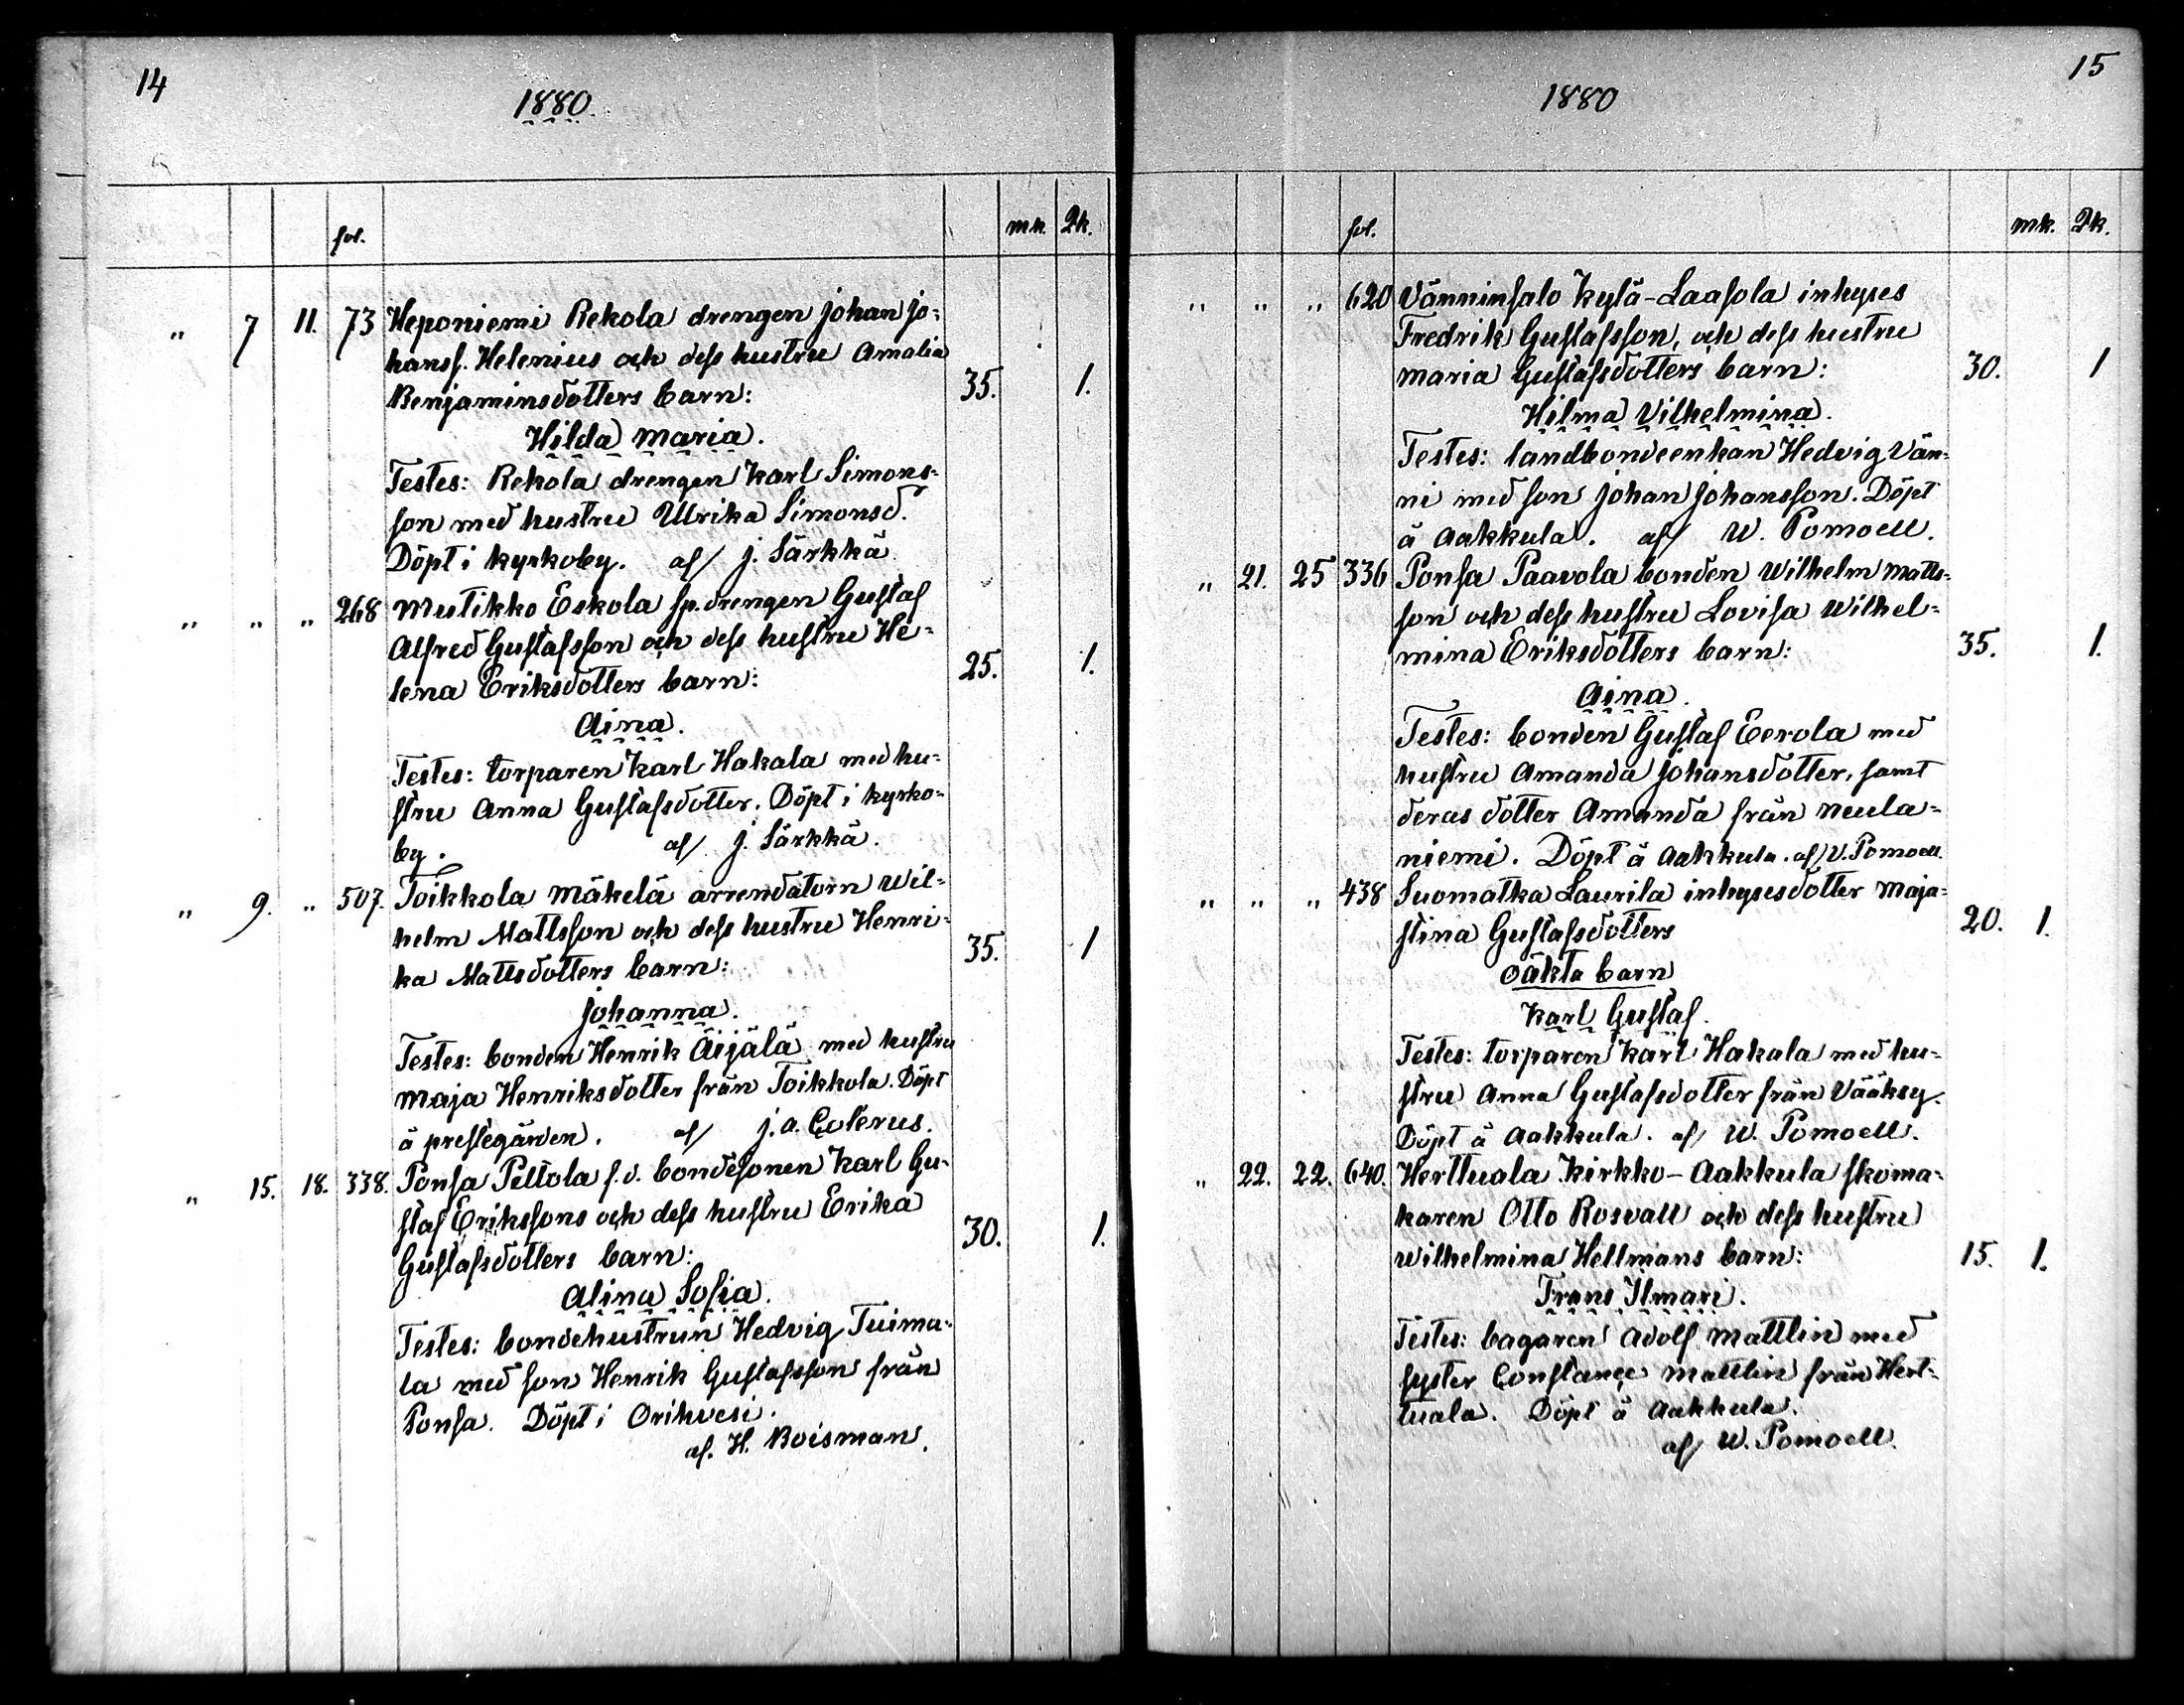 14
1880.
fol. mk. Qk.
" 7 11. 73 Heponiemi Rekola drengen Johan Jo-
hanss. Helenius och dess hustru Amalia
Benjaminsdotters barn: 35. 1.
Hilda Maria.
Testes: Rekola drengen Karl Simons-
son med hustru Ulrika Simonsd.
Döpt i kyrkoby. af/ J. Särkkä.
" " " 268 Mutikko Eskola sp.drengen Gustaf
Alfred Gustafsson och dess hustru He-
lena Eriksdotters barn: 25. 1.
Aina.
Testes: torparen Karl Hakala med hu-
stru Anna Gustafsdotter. Döpt i kyrko-
by. af/ J. Särkkä.
" 9. " 507. Toikkola Mäkelä arrendatorn Wil-
helm Mattsson och dess hustru Henri-
ka Mattsdotters barn: 35. 1
Johanna.
Testes: bonden Henrik Äijälä med hustru
Maja Henriksdotter från Toikkola. Döpt
å prestegården. af/ J. A. Culerus.
" 15. 18. 338. Ponsa Peltola f.d. bondesonen Karl Gu-
staf Erikssons och dess hustru Erika
Gustafsdotters barn: 30. 1.
Alina Sofia.
Testes: bondehustrun Hedvig Tuima-
la med son Henrik Gustafsson från
Ponsa. Döpt i Orihvesi.
af. H. Boisman.
15
1880
fol. mk. Qk.
" " " 620 Vänninsalo Kylä-Laasola inhyses
Fredrik Gustafsson, och dess hustru
Maria Gustafsdotters barn: 30. 1
Hilma Vilhelmina.
Testes: landbondeenkan Hedvig Vän-
ni med son Johan Johansson. Döpt
å Aakkula. af/ W. Pomoell.
" 21. 25 336 Ponsa Paavola bonden Wilhelm Matts-
son och dess hustru Lovisa Wilhel-
mina Eriksdotters barn: 35. 1.
Aina.
Testes: bonden Gustaf Eerola med
hustru Amanda Johansdotter, samt
deras dotter Amanda från Neula-
niemi. Döpt å Aakkula. af/ V. Pomoell.
" " " 438 Suomatka Laurila inhysesdotter Maja-
stina Gustafsdotters 20. 1.
oäkta barn
Karl Gustaf.
Testes: torparen Karl Hakala med hu-
stru Anna Gustafsdotter från Vääksy.
Döpt å Aakkula. af/ W. Pomoell.
" 22. 22. 640. Herttuala Kirkko-Aakkula skoma-
karen Otto Rosvall och dess hustru
Wilhelmina Hellmans barn: 15. 1.
Frans Ilmari.
Testes: bagaren Adolf Mattlin med
syster Constance Mattlin från Hert-
tuala. Döpt å Aakkula.
af/ W. Pomoell.